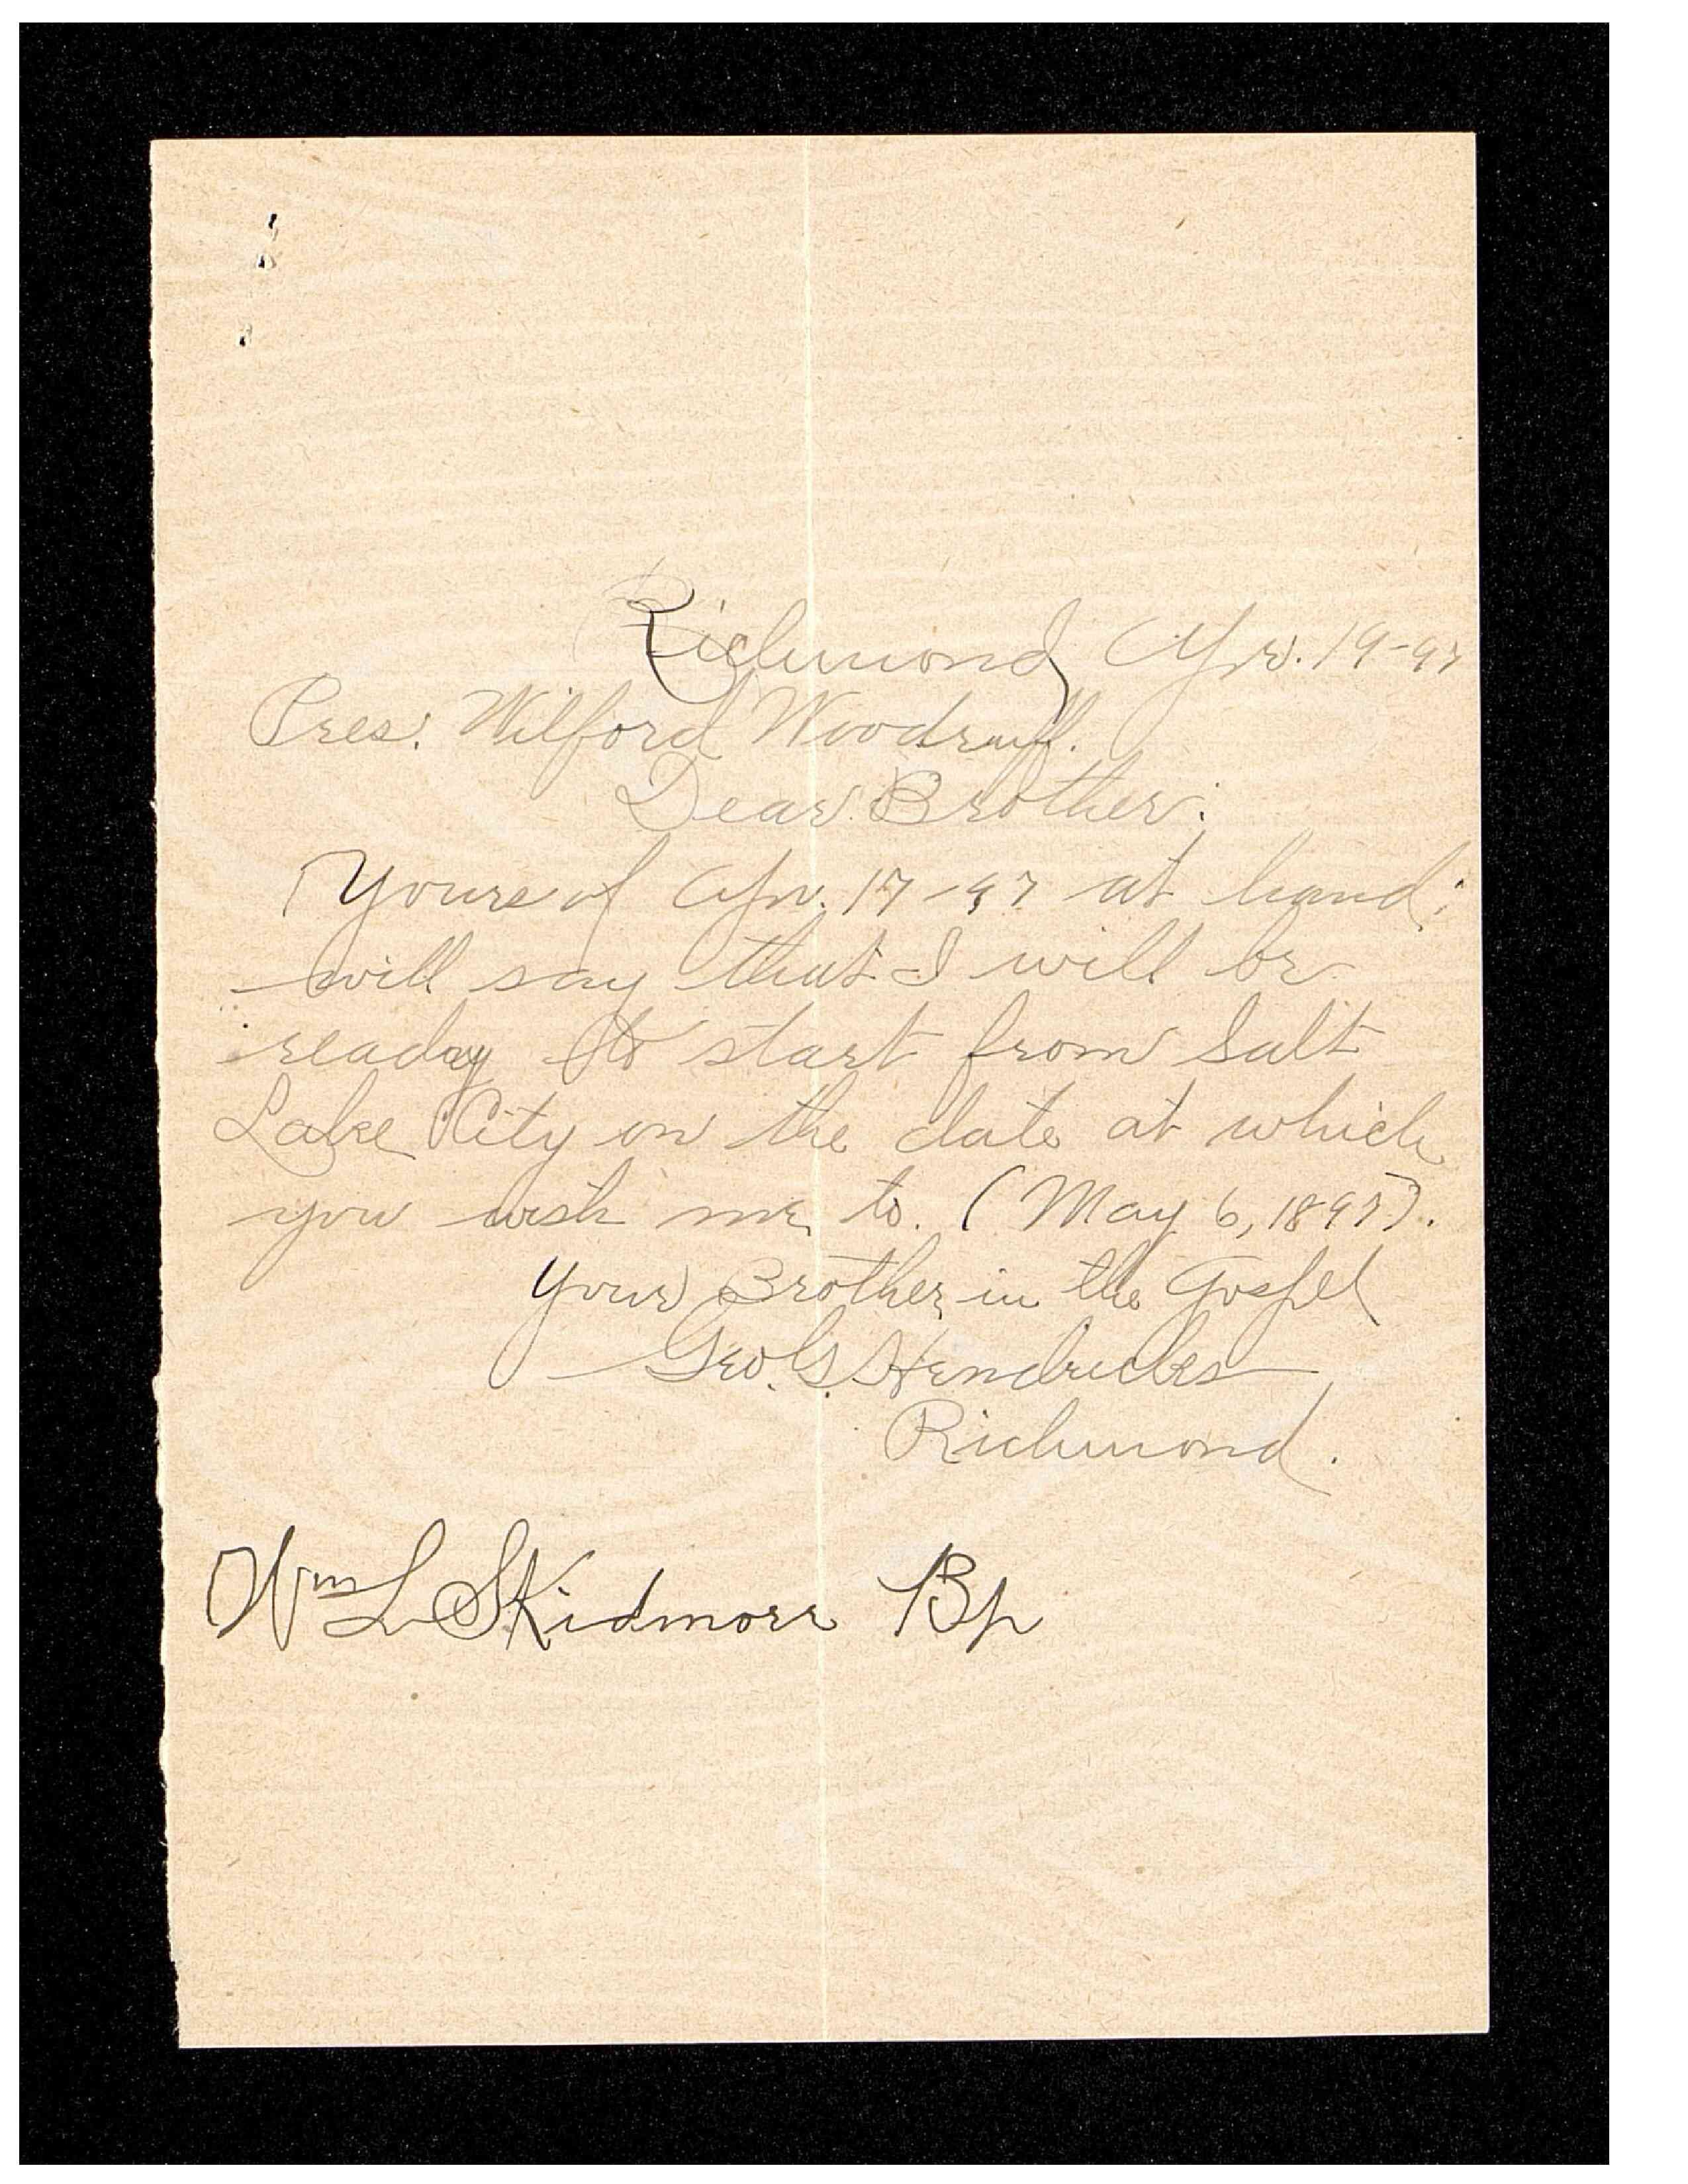 Richmond Apr. 19-97
Pres. Wilford Woodruff.
Dear Brother:
Yours of Apr. 17-97 at hand;
will say that I will be
ready to start from Salt
Lake City on the date at which
you wish me to. (May 6, 1897).
Your Brother in the Gospel
Geo. G. Hendricks
Richmond.
Wm L Skidmore Bp